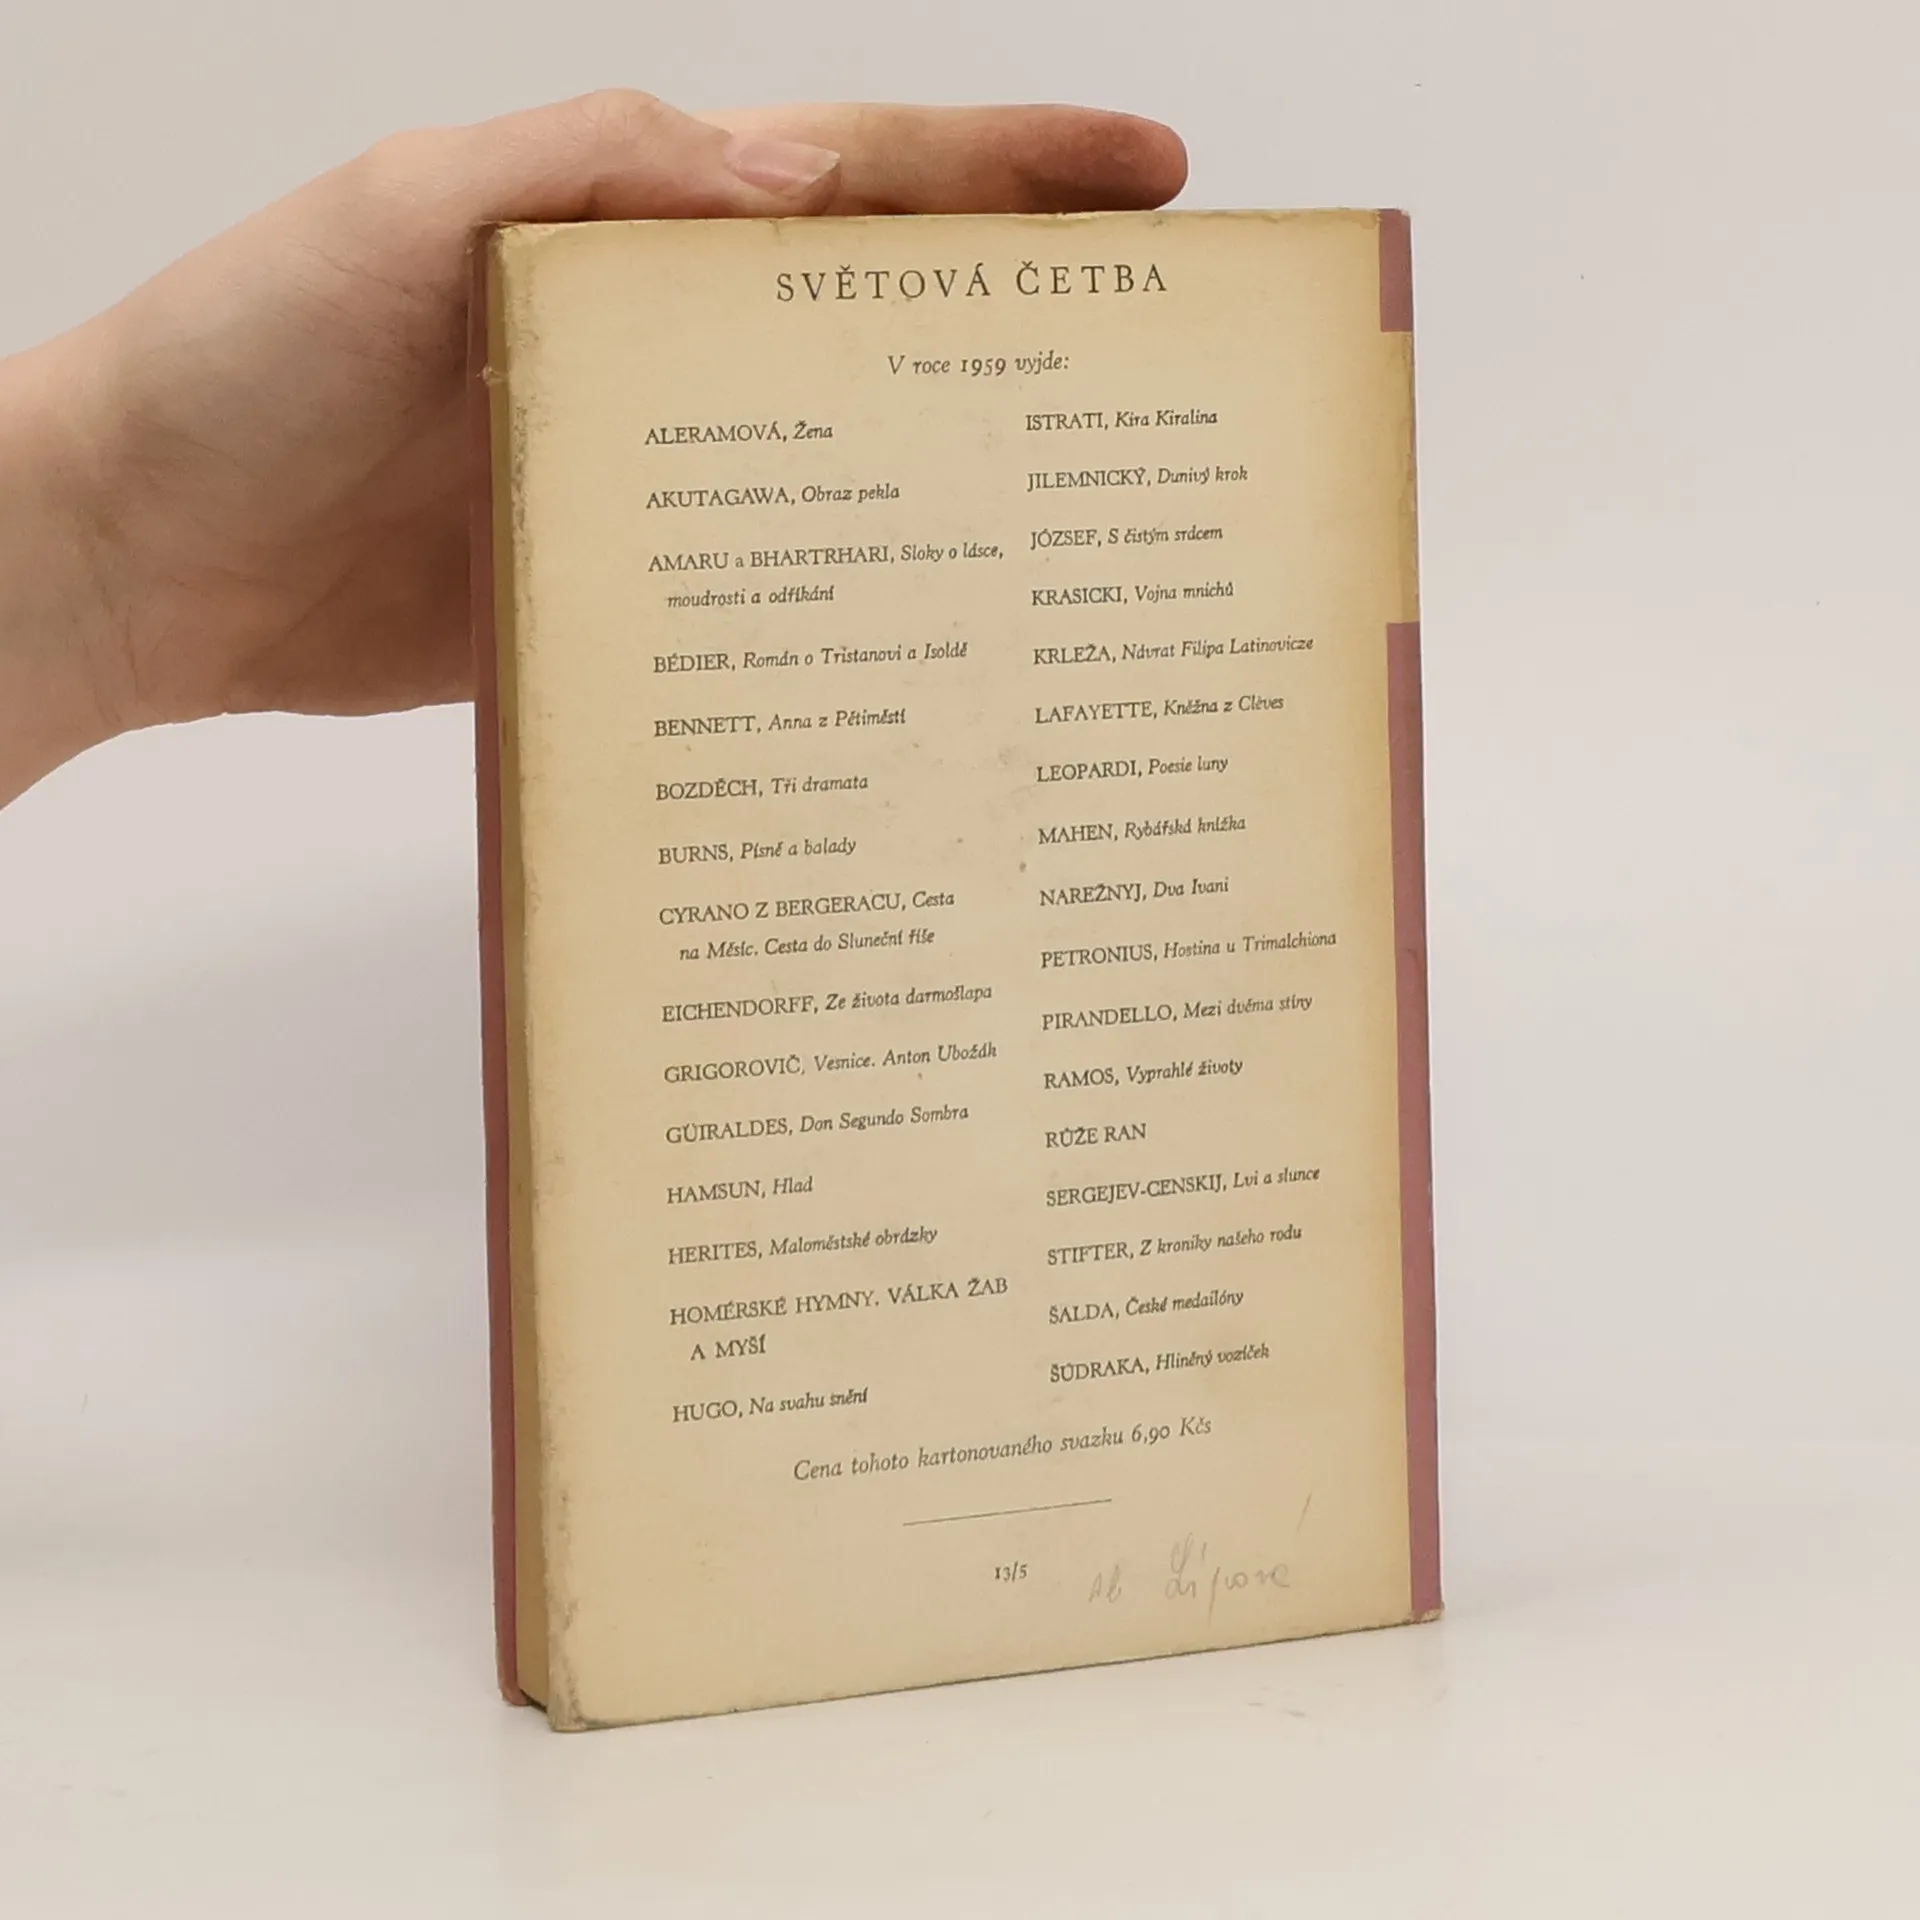 SVĚTOVÁ ČETBA
V roce 1959 vyjde:
ALERAMOVÁ, Žena
AKUTAGAWA, Obraz pekla
AMARU a BHARTRHARI, Sloky o lásce,
moudrosti a odříkání
BÉDIER, Román o Tristanovi a Isoldě
BENNETT, Anna z Pětiměstí
BOZDĚCH, Tři dramata
BURNS, Písně a balady
CYRANO Z BERGERACU, Cesta
na Měsíc. Cesta do Sluneční říše
EICHENDORFF, Ze života darmošlapa
GRIGOROVIČ, Vesnice. Anton Ubožák
GÜIRALDES, Don Segundo Sombra
HAMSUN, Hlad
HERITES, Maloměstské obrázky
HOMÉRSKÉ HYMNY. VÁLKA ŽAB
A MYŠÍ
HUGO, Na svahu snění
ISTRATI, Kira Kiralina
JILEMNICKÝ, Dunivý krok
JÓZSEF, S čistým srdcem
KRASICKI, Vojna mnichů
KRLEŽA, Návrat Filipa Latinovicze
LAFAYETTE, Kněžna z Clèves
LEOPARDI, Poesie luny
MAHEN, Rybářská knížka
NAREŽNYJ, Dva Ivani
PETRONIUS, Hostina u Trimalchiona
PIRANDELLO, Mezi dvěma stíny
RAMOS, Vyprahlé životy
RŮŽE RAN
SERGEJEV-CENSKIJ, Lvi a slunce
STIFTER, Z kroniky našeho rodu
ŠALDA, České medailóny
ŠÚDRAKA, Hliněný vozíček
Cena tohoto kartonovaného svazku 6,90 Kčs
13/5